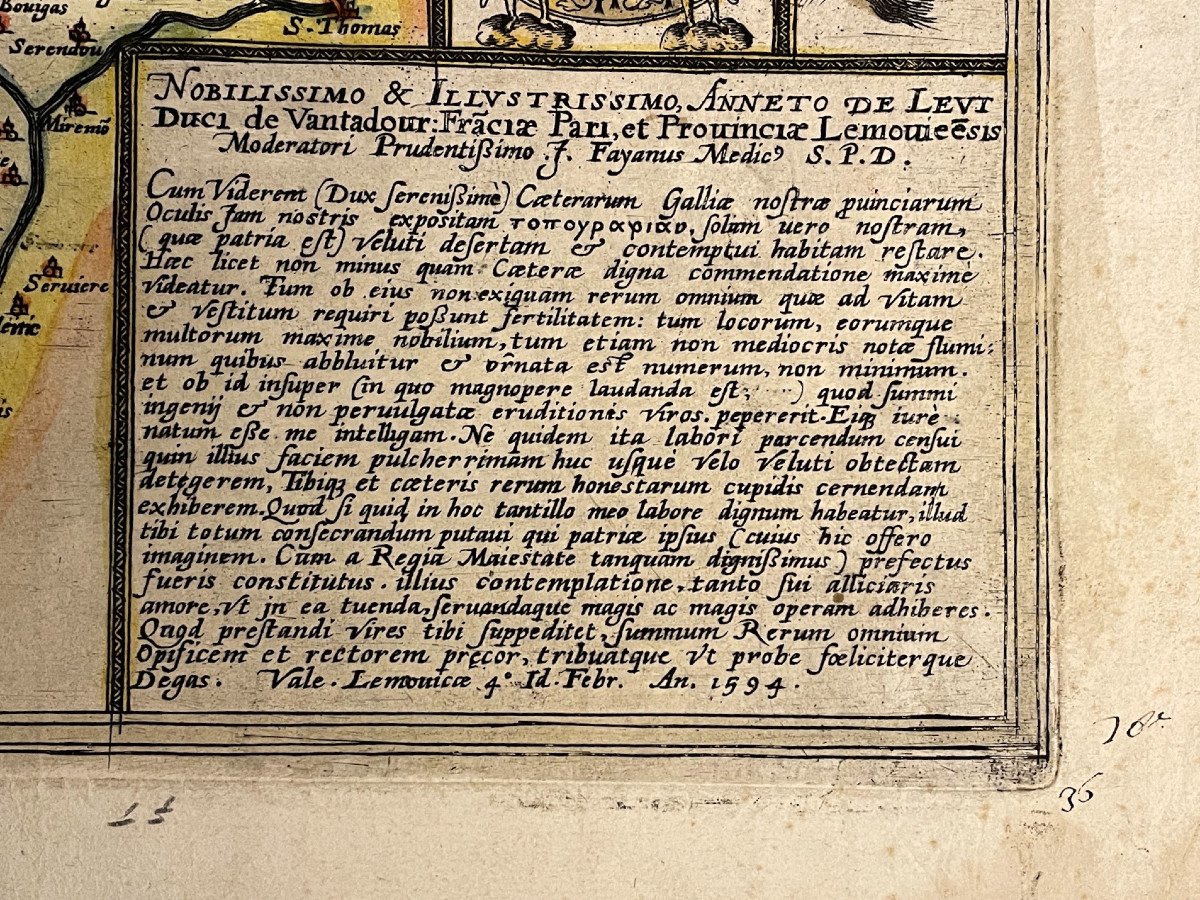 Bouigas
S. Thomas
Serendou
Miremõ
Seruiere
NOBILISSIMO & ILLVSTRISSIMO, ANNETO DE LEVI
Duci de Vantadour: Frãciæ Pari, et Prouinciæ Lemouicēsis
Moderatori Prudentißimo J. Fayanus Medicꝰ S. P. D.
Cum Viderem (Dux ſereniſſimè) Cæterarum Galliæ noſtræ ꝓuinciarum
Oculis Jam noſtris expoſitam τοπογραφίαν, ſolam uero noſtram,
(quæ patria eſt) Veluti deſertam & contemptui habitam reſtare.
Hæc licet non minus quam Cæteræ digna commendatione maxime
videatur. Tum ob eius non exiguam rerum omnium quæ ad vitam
& veſtitum requiri poßunt fertilitatem: tum locorum, eorumque
multorum maxime nobilium, tum etiam non mediocris notæ flumi:
num quibus abbluitur & ornata eſt numerum, non minimum.
et ob id inſuper (in quo magnopere laudanda eſt, ) quod ſummi
ingenij & non peruulgatæ eruditionis viros pepererit. Eiqꝫ iurè
natum eße me intelligam. Ne quidem ita labori parcendum cenſui
quin illius faciem pulcherrimam huc uſque velo veluti obtectam
detegerem, Tibiqꝫ et cæteris rerum honeſtarum cupidis cernendam
exhiberem. Quod ſi quid in hoc tantillo meo labore dignum habeatur, illud
tibi totum conſecrandum putaui qui patriæ ipſius (cuius hic offero
imaginem. Cum a Regia Maieſtate tanquam digniſſimus) prefectus
fueris conſtitutus. illius contemplatione, tanto ſui alliciaris
amore, vt jn ea tuenda, ſeruandaque magis ac magis operam adhiberes.
Quod preſtandi vires tibi ſuppeditet, ſummum Rerum omnium
Opificem et rectorem pręcor, tribuatque vt probe fœliciterque
Degas. Vale. Lemouicæ 4° Id. Febr. An. 1594.
36